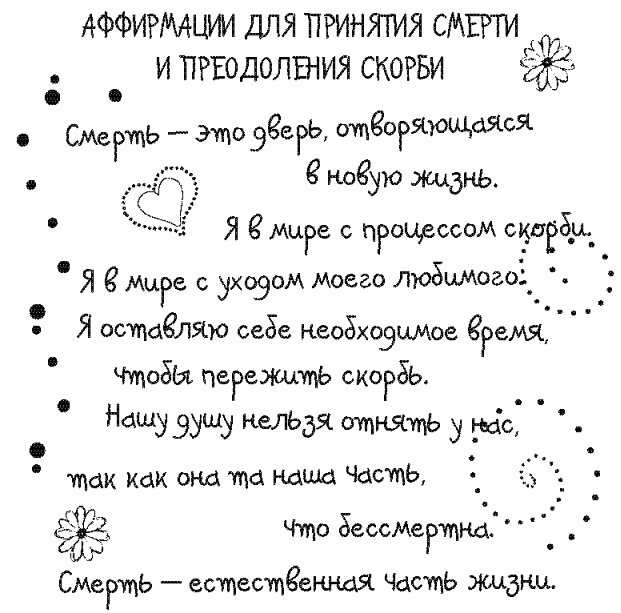 АФФИРМАЦИИ ДЛЯ ПРИНЯТИЯ СМЕРТИ
И ПРЕОДОЛЕНИЯ СКОРБИ
Смерть — это дверь, отворяющаяся
в новую жизнь.
Я в мире с процессом скорби.
Я в мире с уходом моего любимого.
Я оставляю себе необходимое время,
чтобы пережить скорбь.
Нашу душу нельзя отнять у нас,
так как она та наша часть,
что бессмертна.
Смерть — естественная часть жизни.